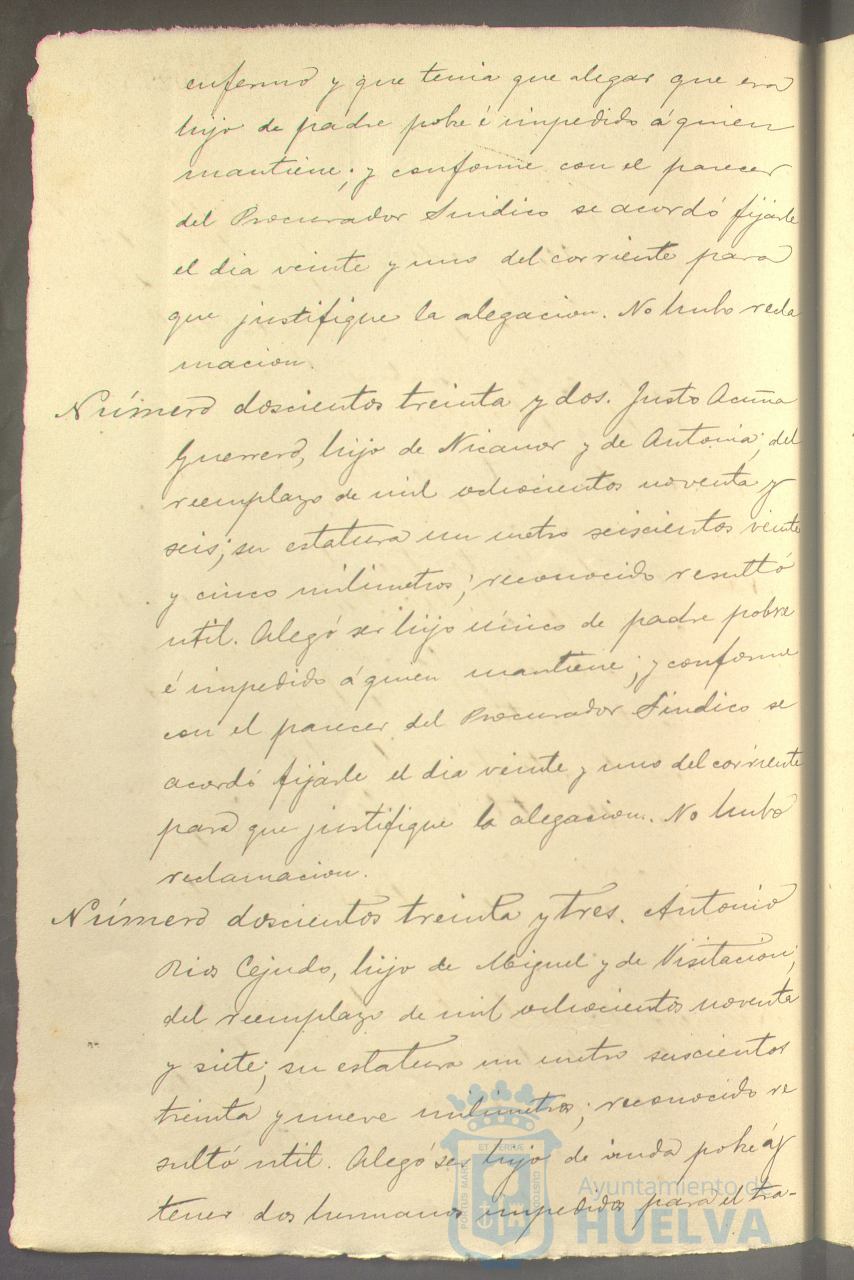 enfermo y que tenia que alegar que era
hijo de padre pobre é impedido á quien
mantiene; y conforme con el parecer
del Procurador Sindico se acordó fijarle
el dia veinte y uno del corriente para
que justifique la alegacion. No hubo recla
macion.
Número doscientos treinta y dos. Justo Acuña
Guerrero, hijo de Nicanor y de Antonia; del
reemplazo de mil ochocientos noventa y
seis; su estatura un metro seiscientos veinte
y cinco milimetros; reconocido resultó
util. Alegó ser hijo único de padre pobre
é impedido á quien mantiene; y conforme
con el parecer del Procurador Sindico se
acordó fijarle el dia veinte y uno del corriente
para que justifique la alegacion. No hubo
reclamacion.
Número doscientos treinta y tres. Antonio
Rios Cejudo, hijo de Miguel y de Visitacion;
del reemplazo de mil ochocientos noventa
y siete; su estatura un metro seiscientos
treinta y nueve milimetros; reconocido re
sultó util. Alegó ser hijo de viuda pobre y
tener dos hermanos impedidos para el tra-
PORTUS MARIS ET TERRAE CUSTODIA
Ayuntamiento de
HUELVA